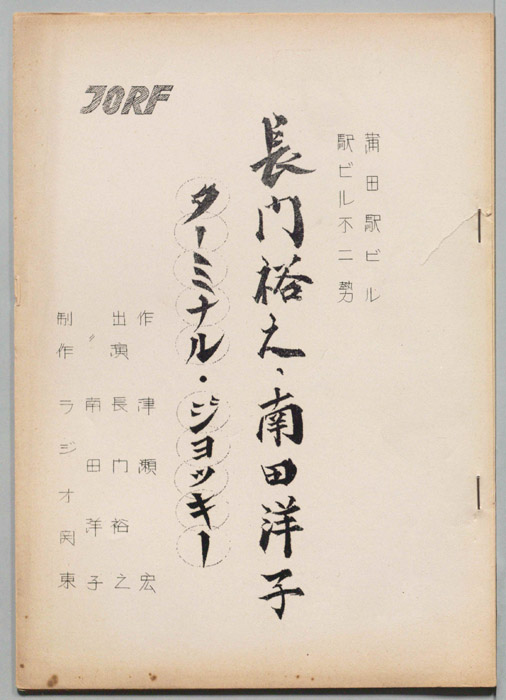 JORF
蒲田駅ビル
駅ビル不二勢
長門裕之、南田洋子
ターミナル・ジョッキー
作 津瀬宏
出演 長門裕之
〃 南田洋子
制作 ラジオ関東